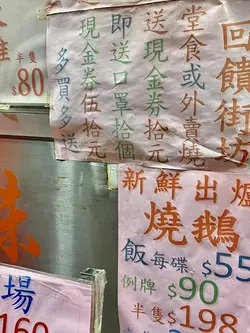 回饋街坊
堂食或外賣燒
送現金券拾元
即送口罩拾個
現金券伍拾元
多買多送
半隻
$80
新鮮出爐
燒鵝
飯每碟 $55
例牌 $90
半隻 $198
味
場
160